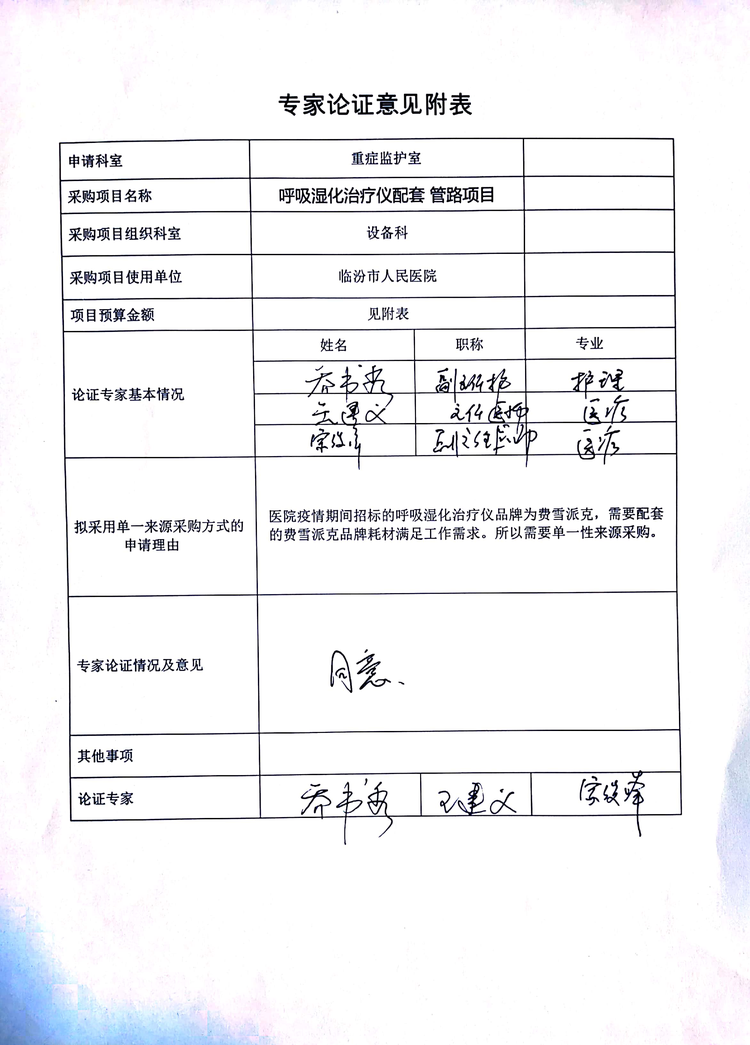 专家论证意见附表
申请科室 重症监护室
采购项目名称 呼吸湿化治疗仪配套 管路项目
采购项目组织科室 设备科
采购项目使用单位 临汾市人民医院
项目预算金额 见附表
论证专家基本情况
姓名 职称 专业
乔书秀 副主任护 护理
王建义 主任医师 医疗
宗俊峰 副主任医师 医疗
拟采用单一来源采购方式的
申请理由
医院疫情期间招标的呼吸湿化治疗仪品牌为费雪派克，需要配套
的费雪派克品牌耗材满足工作需求。所以需要单一性来源采购。
专家论证情况及意见 同意、
其他事项
论证专家 乔书秀 王建义 宗俊峰